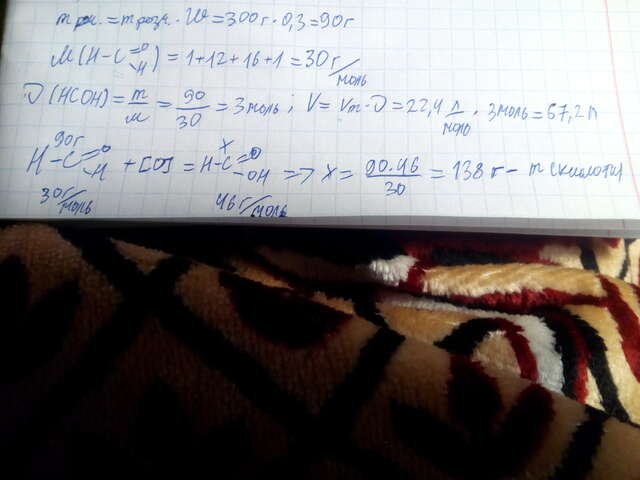 m р.н. = m розч. · W = 300 г · 0,3 = 90 г
M(H-C=O-H) = 1+12+16+1 = 30 г/моль
ν(HCOH) = m/M = 90/30 = 3 моль ; V = Vm·ν = 22,4 л/моль · 3 моль = 67,2 л
90г x
H-C=O-H + [O] = H-C=O-OH => x = 90·46/30 = 138 г - m (кислоти)
30г/моль 46г/моль